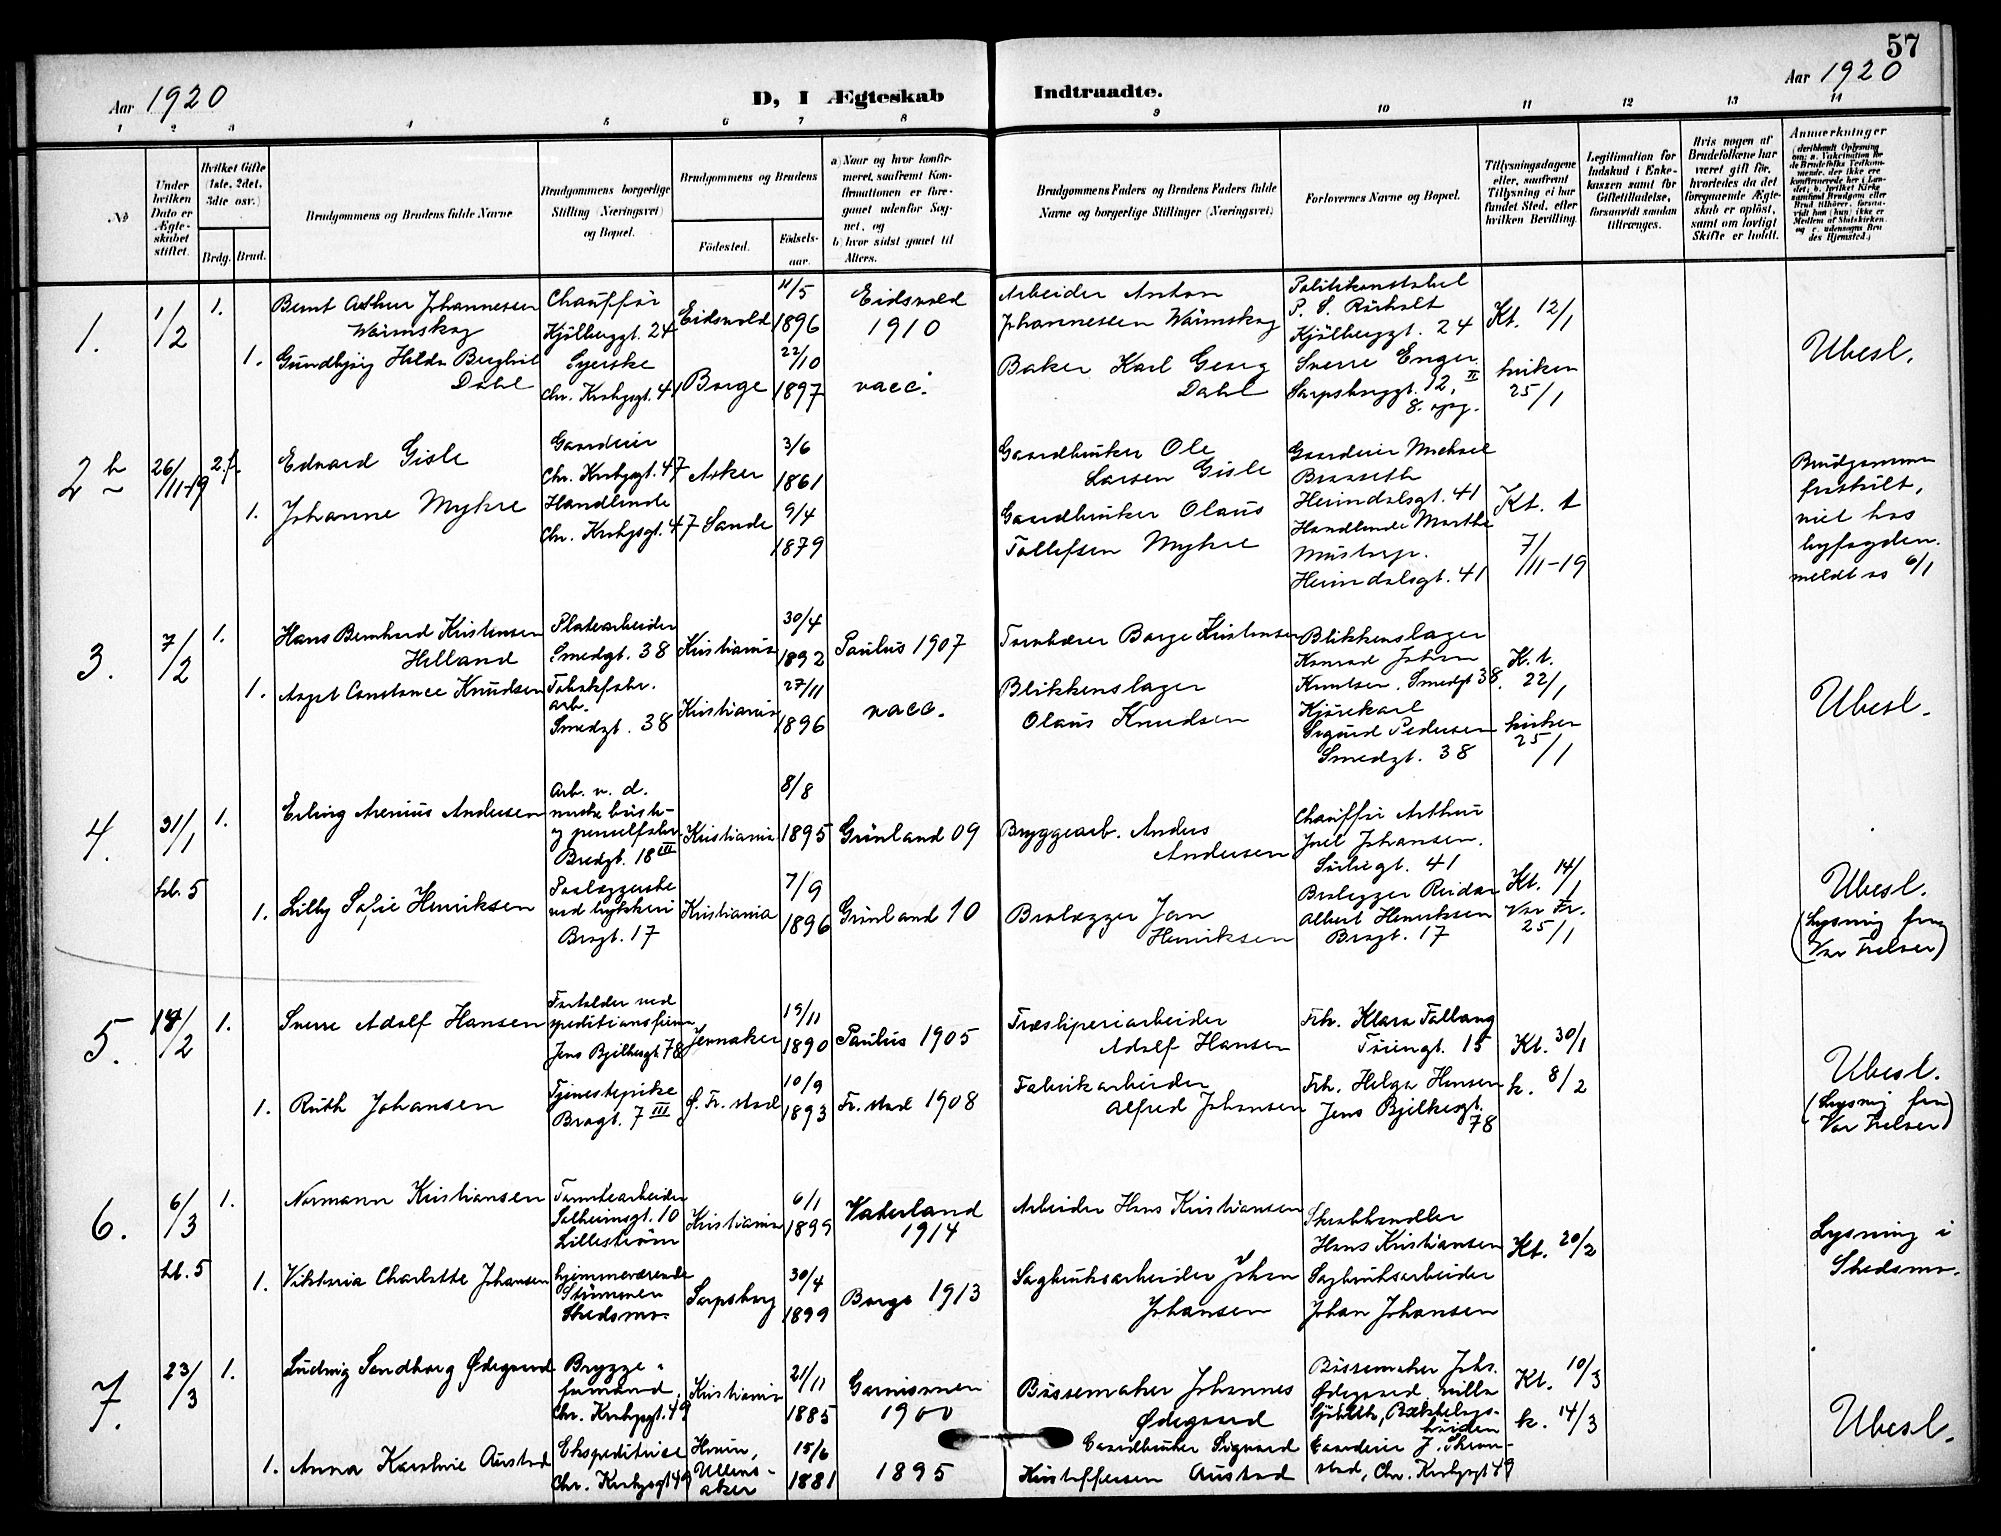 57
Aar 1920
D, I Ægteskab Indtraadte.
Aar 1920
1 2 3 4 5 6 7 8 9 10 11 12 13 14
No
Under hvilken Dato er Ægteskabet stiftet.
Hvilket Gifte (1ste, 2det, 3die osv.)
Brdg. Brud.
Brudgommens og Brudens fulde Navne
Brudgommens borgerlige Stilling (Næringsvei) og Bopæl.
Brudgommens og Brudens
Födested. Födselsaar.
a) Naar og hvor konfirmeret, saafremt Konfirmationen er foregaaet udenfor Sognet, og
b) hvor sidst gaaet til Alters.
Brudgommens Faders og Brudens Faders fulde Navne og borgerlige Stillinger (Næringsvei)
Forlovernes Navne og Bopæl.
Tillysningsdagene eller, saafremt Tillysning ei har fundet Sted, efter hvilken Bevilling.
Legitimation for Indskud i Enkekassen samt for Giftetilladelse, forsaavidt saadan tiltrænges.
Hvis nogen af Brudefolkene har været gift før, hvorledes da det foregaaende Ægteskab er oplöst, samt om lovligt Skifte er holdt.
Anmærkninger
1. 1/2 1. Bernt Arthur Johannessen Wærnskog
Chauffør Kjölberggt. 24
Eidsvold 11/5 1896
Eidsvold 1910
Arbeider Anton Johannessen Wærnskog
Politikonstabel P. S. Råholt Kjölberggt. 24
Kt. 12/1
Ubesl.
1. Gundbjørg Hilda Berghild Dahl
Syerske Chr. Krohgsgt. 41
Borge 22/10 1897
vacc.
Baker Karl Georg Dahl
Sverre Enger Sarpsborggt. 12, II 8. opg.
kirken 25/1
2 b 26/11-19 2.f. Edvard Gisle
Gaardeier Chr. Krohgsgt. 47
Asker 3/6 1861
Gaardbruker Ole Larsen Gisle
Gaardeier Michael Braaseth Heimdalsgt. 41
Kt. t
Brudgommen fraskilt, viet hos byfogden. meldt os 6/1
1. Johanne Myhre
Handlende Chr. Krohgsgt. 47
Sande 9/4 1879
Gaardbruker Olaus Tollefsen Myhre
Handlende Marthe Mustorp. Heimdalsgt. 41
7/11-19
3. 7/2 1. Hans Bernhard Kristensen Helland
Platearbeider Smedgt. 38
Kristiania 30/4 1892
Paulus 1907
Tømmerer Borge Kristensen
Blikkenslager Konrad Johan Knutsen. Smedgt 38.
K.t. 22/1
Ubesl.
1. Aagot Constance Knudsen
Tobakfabr. arb. Smedgt. 38
Kristiania 27/11 1896
vacc.
Blikkenslager Olaus Knudsen
Kjørekarl Sigurd Pedersen Smedgt. 38
kirken 25/1
4. 31/1 1. Erling Arenius Andersen
Arb. v. d. norske børste- og penselfabr. Bredgt. 18 III
Kristiania 8/8 1895
Grönland 09
Bryggearb. Anders Andersen
Chauffør Arthur Joel Johansen. Sörligt. 41
Kt. 14/1
Ubesl.
kl. 5
1. Lilly Sofie Henriksen
Paalæggerske ved trykkeri Bragt. 17
Kristiania 7/9 1896
Grönland 10
Brolægger Jan Henriksen
Brolegger Reidar Albert Henriksen Bragt. 17
Vor Fr. 25/1
(Lysning fra Vor Frelser)
5. 14/2 1. Sverre Adolf Hansen
Jens Bjelkesgt 78
Jevnaker 19/11 1890
Paulus 1905
Træsliperiarbeider Adolf Hansen
Frk. Klara Tallang Tøiengt. 15
Kt. 30/1
Ubesl.
1. Ruth Johansen
Tjenestepike Bragt. 7 III
g. Fr. stad 10/9 1893
Fr. stad 1908
Fabrikarbeider Alfred Johansen
Frk. Helga Hansen Jens Bjelkesgt. 78
k. 8/2
(Lysning fra Vor Frelser)
6. 6/3 1. Normann Kristiansen
Tomtearbeider Solheimsgt. 10 Lilleström
Kristiania 6/1 1899
Vaterland 1914
Arbeider Hans Kristiansen
Skraphandler Hans Kristiansen
Kt. 20/2
Lysning i Skedsmo.
kl. 5
1. Viktoria Charlotte Johansen
hjemmeværende Strömmen Skedsmo.
Sarpsborg 30/4 1899
Borge 1913
Sagbruksarbeider Johan Johansen
Sagbruksarbeider Johan Johansen
7. 23/3 1. Ludvig Sandborg Ødegaard
Bryggeformand, Chr. Krohgsgt. 49
Kristiania 21/11 1885
Garnisonen 1900
Bössemaker Johannes Ødegaard
Bössemaker Johs. Ødegaard, villa
Kt. 10/3
k. 14/3
Ubesl.
1. Anna Karoline Austad
Ekspeditrise Chr. Krohgsgt 49
Hovin, Ullensaker 15/6 1881
1895
Gaardbruker Sigvard Kristoffersen Austad
Gaardeier J. Thronstad, Chr. Krohgsgt 49